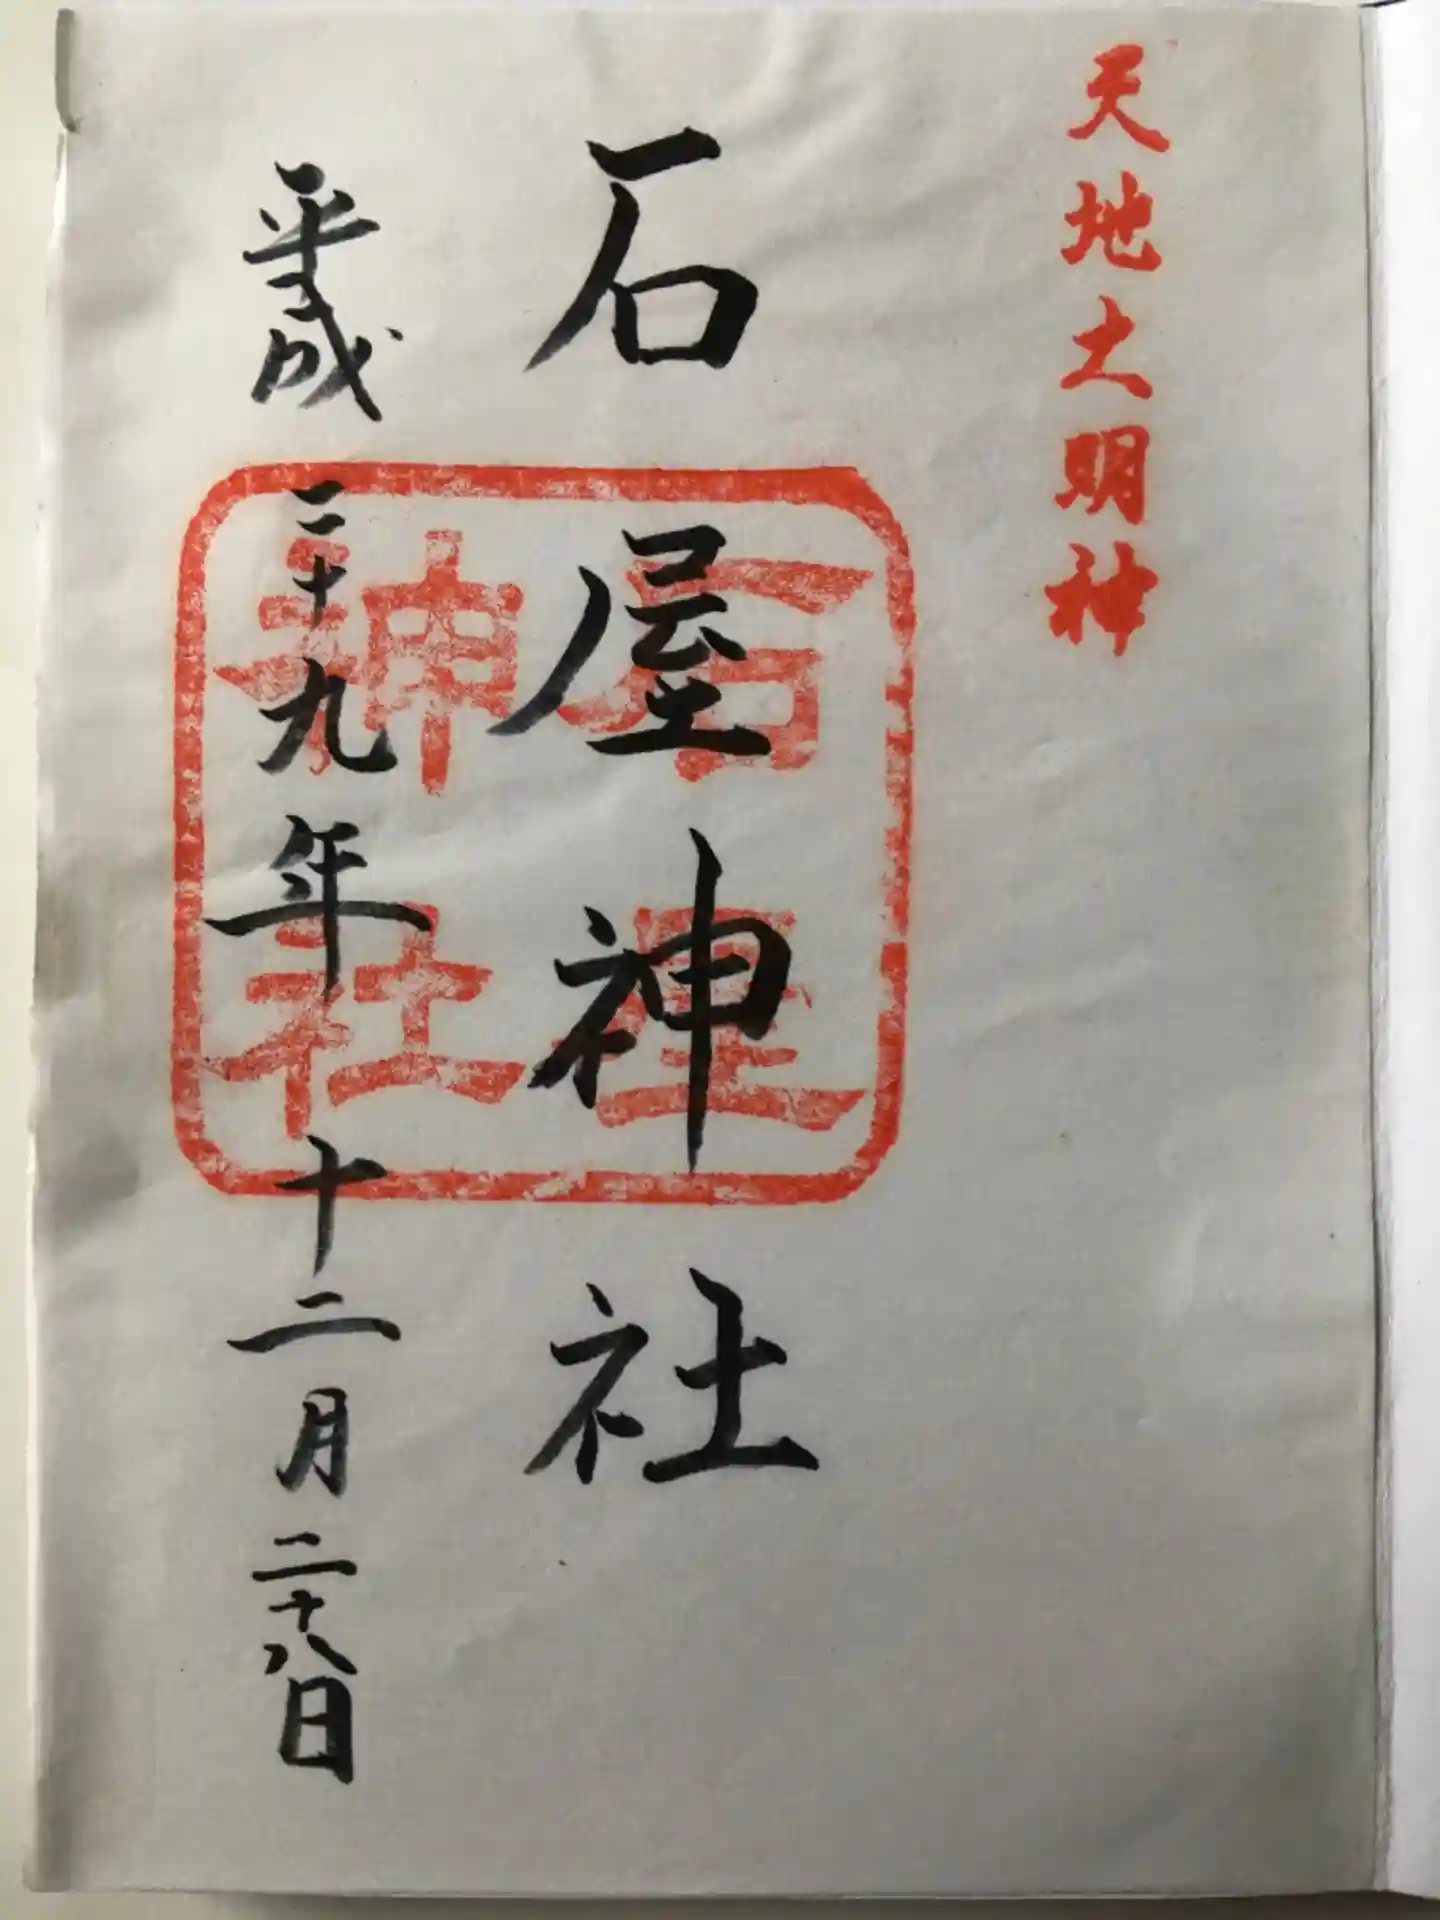 天地大明神
石屋神社
平成二十九年十二月二十八日
石屋
神社